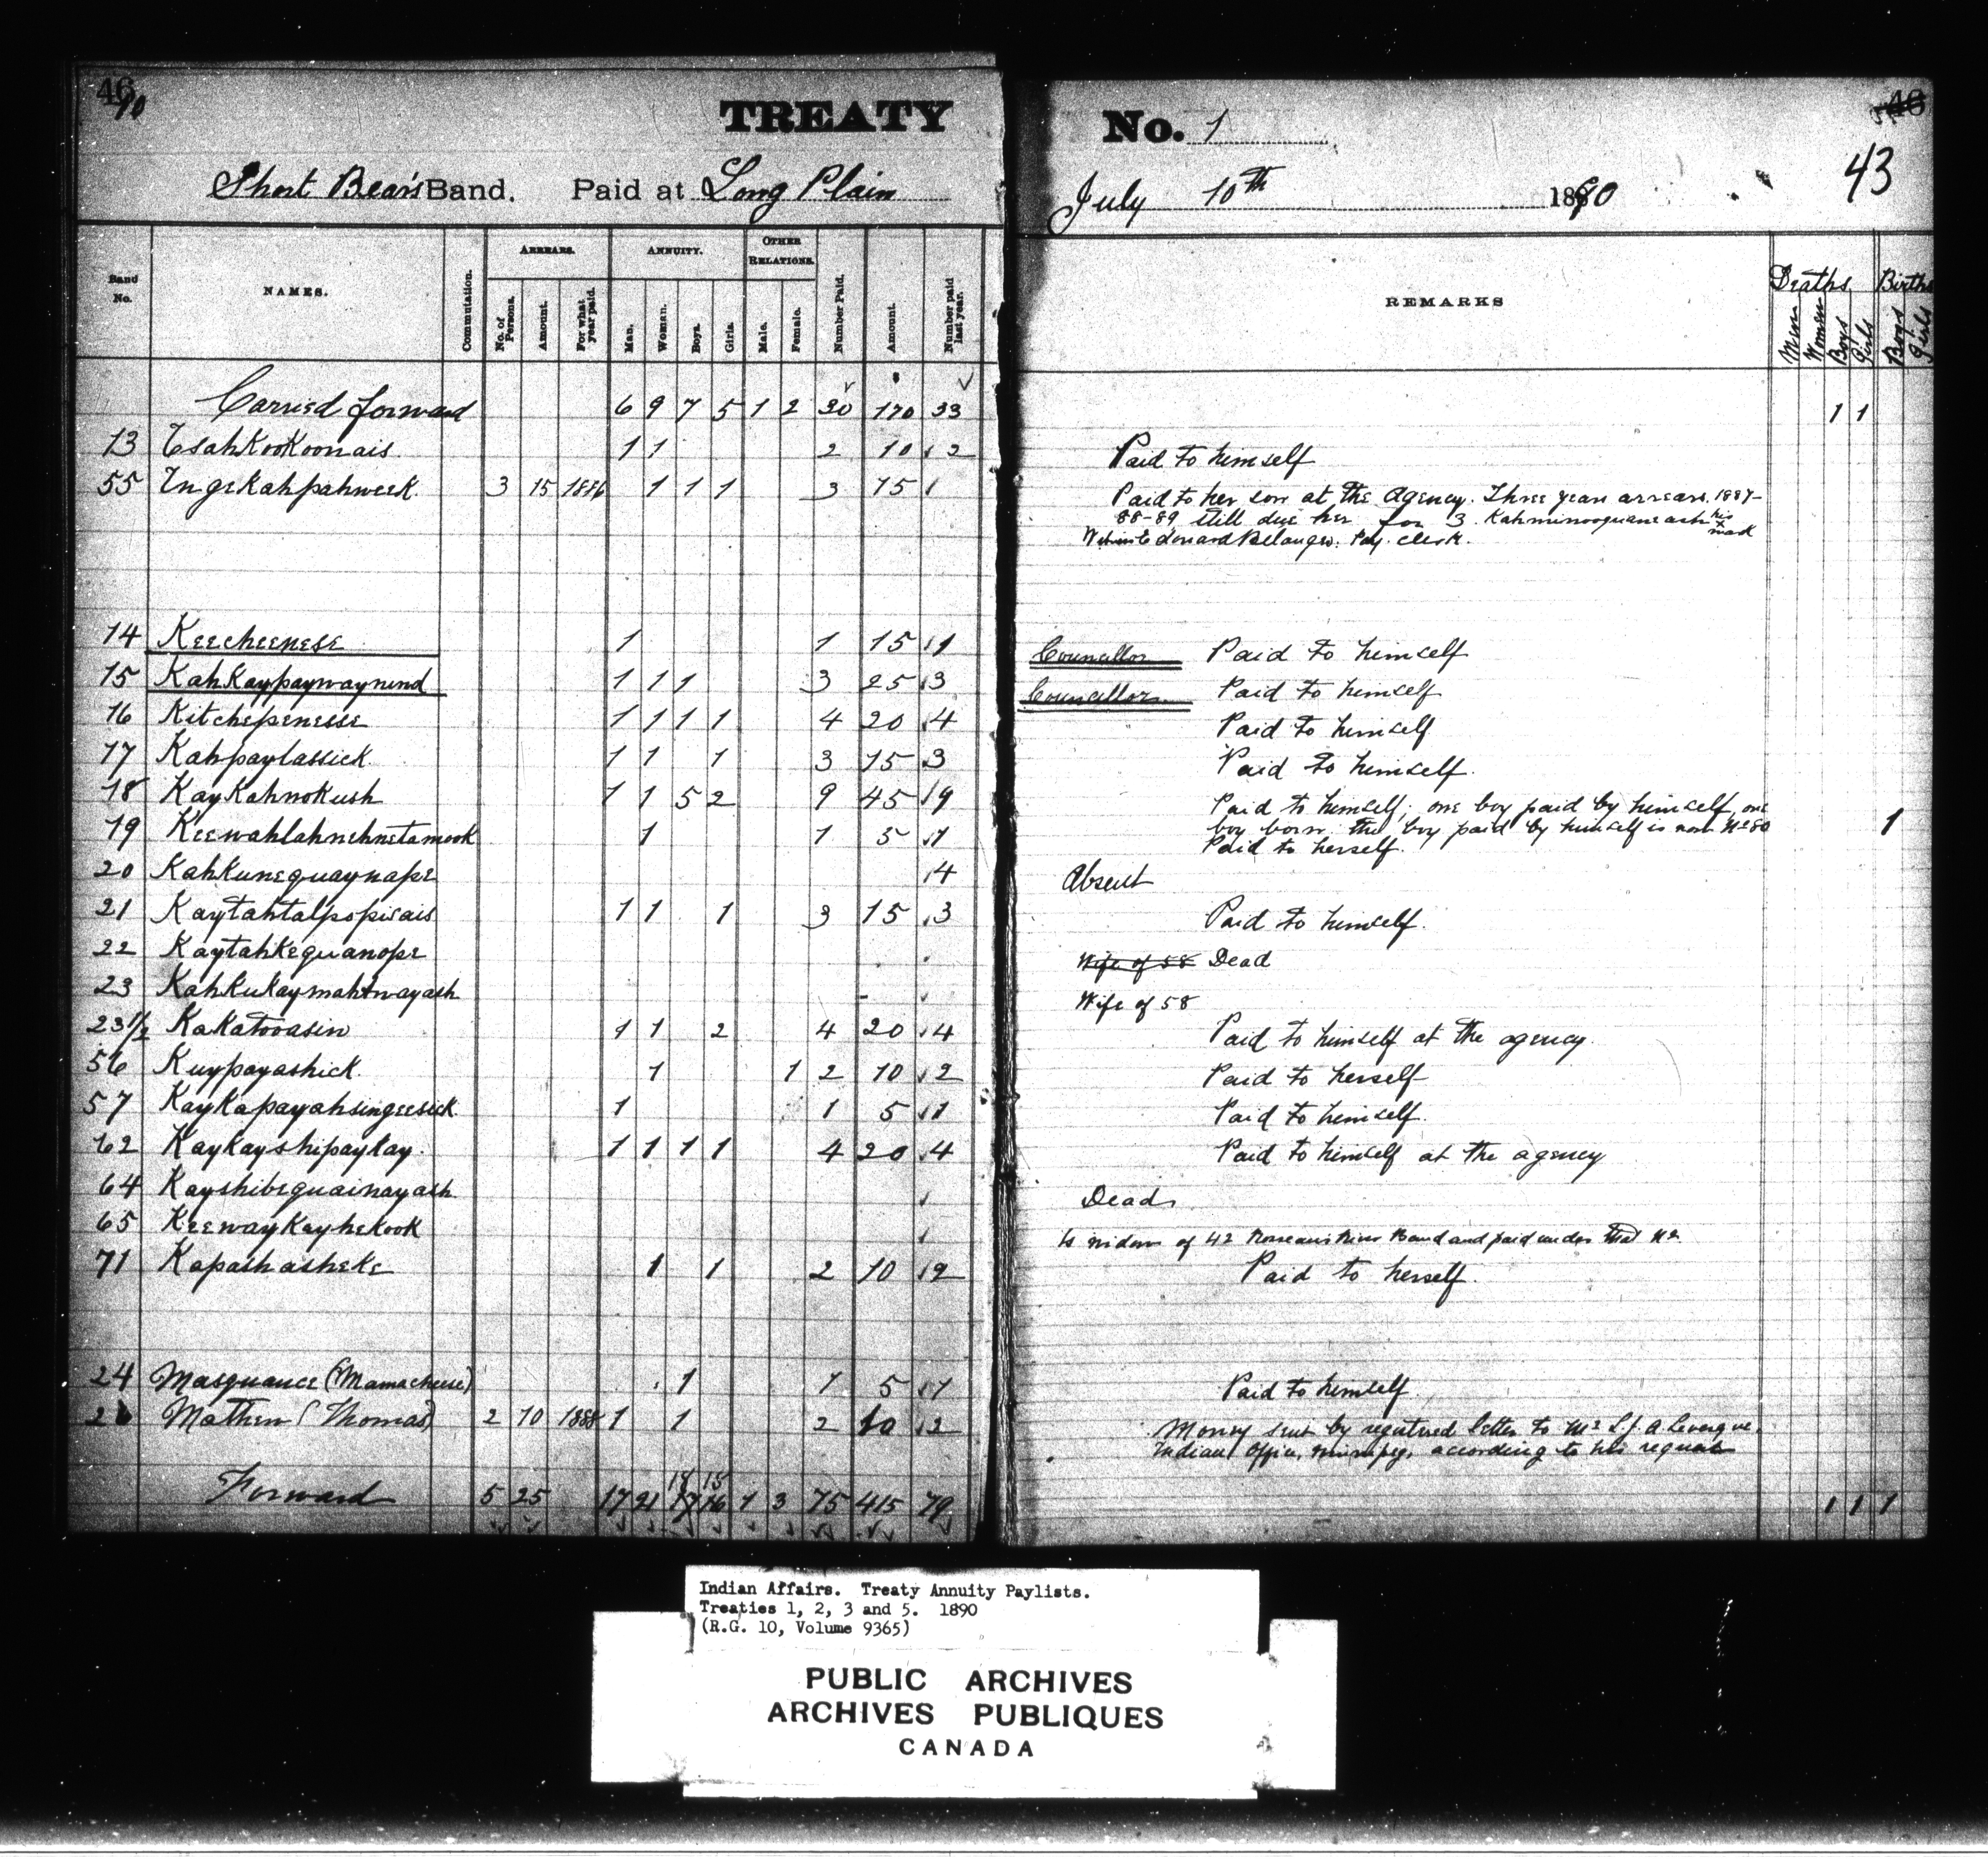 46 90
TREATY No. 1
46
43
Short Bear's Band. Paid at Long Plain July 10th 1890
Band No. NAMES. Commutation. ARREARS. No. of Persons. Amount. For what year paid. ANNUITY. Man. Woman. Boys. Girls. OTHER RELATIONS. Male. Female. Number Paid. Amount. Number paid last year. REMARKS Deaths Men Women Boys Girls Births Boys Girls
Carried forward 6 9 7 5 1 2 30 170 33 1 1
13 TsahKooKoonais 1 1 2 10 2 Paid to himself
55 IngeKahpahweek 3 15 1886 1 1 1 3 15 Paid to her son at the Agency. Three years arrears, 1887-
88-89 still due her for 3. Kahminooquaneash his x mark
Witness Edouard Belanger. Pay. clerk.
14 Keecheenese 1 1 15 1 Councillor Paid to himself
15 KahKaypaywaynind 1 1 1 3 25 3 Councillor Paid to himself
16 Kitchepenesse 1 1 1 1 4 20 4 Paid to himself
17 Kahpaylassick 1 1 1 3 15 3 Paid to himself.
18 KayKahnoKush 1 1 5 2 9 45 9 Paid to himself, one boy paid by himself, one
boy born. the boy paid by himself is now No 80 1
19 Keewahlahnehnetamook 1 1 5 1 Paid to herself.
20 KahKunequaynape 4 Absent
21 Kaytahtalpopisais 1 1 1 3 15 3 Paid to himself.
22 KaytahKequanope Wife of 58 Dead
23 KahKuKaymahtwayash Wife of 58
23 1/2 Kakatooasin 1 1 2 4 20 4 Paid to himself at the agency.
56 Kuypayashick 1 1 2 10 2 Paid to herself
57 KayKapayahsingeesick 1 1 5 1 Paid to himself.
62 KayKayshipaytay 1 1 1 1 4 20 4 Paid to himself at the agency
64 Kayshibequainayash Dead
65 KeewayKayheKook Is widow of 42 Rosseau River Band and paid under that No.
71 KapashasheKe 1 1 2 10 2 Paid to herself.
24 Masquance (Mamacheese) 1 1 5 1 Paid to himself.
26 Mathew (Thomas) 2 10 1888 1 1 2 10 2 Money sent by registered letter to Mr L.J.A Leveque,
Indian Office, Winnipeg, according to his request
18 15
Forward 5 25 17 21 17 16 1 3 75 415 79 1 1 1
Indian Affairs. Treaty Annuity Paylists.
Treaties 1, 2, 3 and 5. 1890
(R.G. 10, Volume 9365)
PUBLIC ARCHIVES
ARCHIVES PUBLIQUES
CANADA